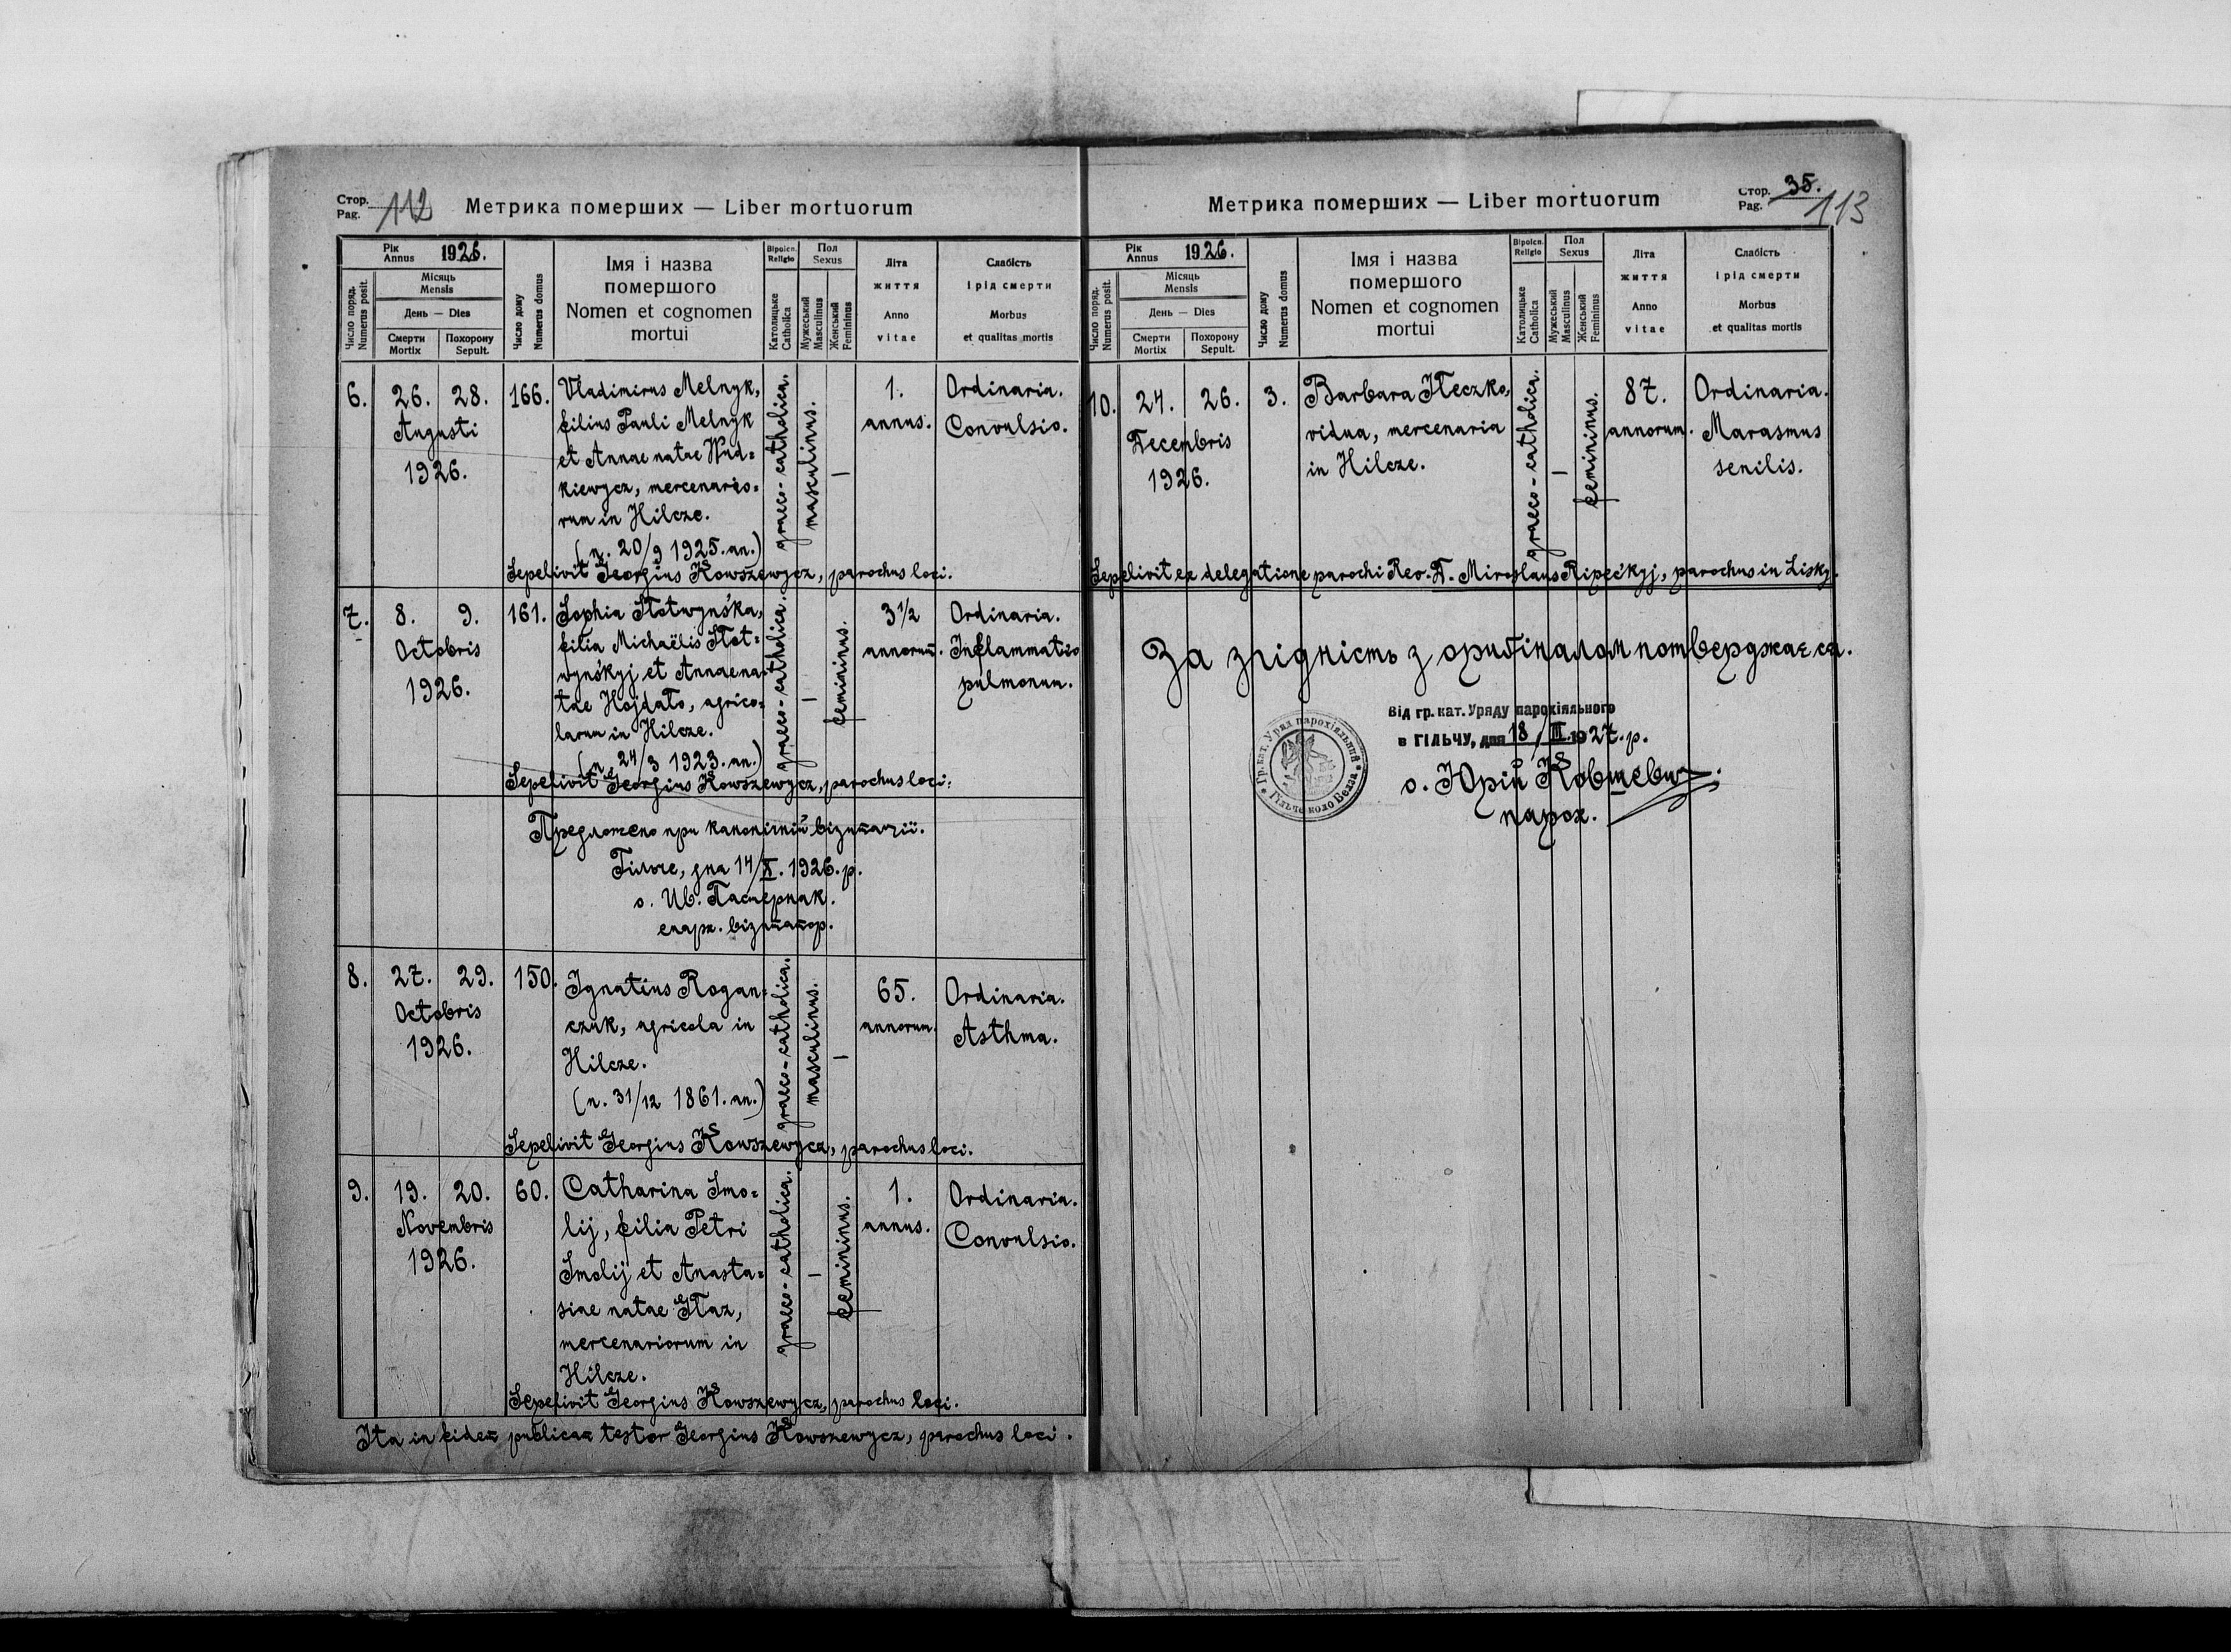 Стор.
Pag. 112
Метрика померших — Liber mortuorum
Рік
Annus 1926.
Місяць
Mensis
День — Dies
Число поряд.
Numerus posit.
Смерти
Mortix
Похорону
Sepult.
Число дому
Numerus domus
Імя і назва
померого
Nomen et cognomen
mortui
Віроісп.
Religio
Католицьке
Catholica
Пол
Sexus
Мужеський
Masculinus
Женський
Femininus
Літа
життя
Anno
vitae
Слабість
і рід смерти
Morbus
et qualitas mortis
6. 26. 28. 166.
Augusti
1926.
Vladimirus Melnyk,
filius Pauli Melnyk
et Annae natae Wud=
kiewycz, mercenario=
rum in Hilcze.
(n. 20/9 1925. an.)
graeco-catholica.
masculinus.
—
1.
annus.
Ordinaria.
Convulsio.
Sepelivit Georgius Kowszewycz, parochus loci.
7. 8. 9. 161.
Octobris
1926.
Sophia
filia Michaëlis
et Annae na=
tae Hojdalo, agrico=
larum in Hilcze.
(n. 24/3 1923. an.)
graeco-catholica.
—
femininus.
3 1/2
annorum.
Ordinaria.
Inflammatio
pulmonum.
Sepelivit Georgius Kowszewycz, parochus loci.
Предложено при канонічній візитації.
Гільче, дна 14/X. 1926. р.
о. Ив. Пастернак.
епарх. візитатор.
8. 27. 29. 150.
Octobris
1926.
Ignatius Rogan=
czuk, agricola in
Hilcze.
(n. 31/12 1861. an.)
graeco-catholica.
masculinus.
—
65.
annorum.
Ordinaria.
Asthma.
Sepelivit Georgius Kowszewycz, parochus loci.
9. 19. 20. 60.
Novembris
1926.
Catharina Smo=
lij, filia Petri
Smolij et Anasta=
siae natae
mercenariorum in
Hilcze.
graeco-catholica.
—
femininus.
1.
annus.
Ordinaria.
Convulsio.
Sepelivit Georgius Kowszewycz, parochus loci.
Ita in fidem publicam testor Georgius Kowszewycz, parochus loci.
Метрика померших — Liber mortuorum
Стор.
Pag. 35.
113
Рік
Annus 1926.
Місяць
Mensis
День — Dies
Число поряд.
Numerus posit.
Смерти
Mortix
Похорону
Sepult.
Число дому
Numerus domus
Імя і назва
помершого
Nomen et cognomen
mortui
Віроісп.
Religio
Католицьке
Catholica
Пол
Sexus
Мужеський
Masculinus
Женський
Femininus
Літа
життя
Anno
vitae
Слабість
і рід смерти
Morbus
et qualitas mortis
10. 24. 26. 3.
Decembris
1926.
Barbara
vidua, mercenaria
in Hilcze.
graeco-catholica.
—
femininus.
87.
annorum.
Ordinaria.
Marasmus
senilis.
Sepelivit ex delegatione parochi Rev. D. Miroslaus Ripećkyj, parochus in Lisky.
За згідність з ориґіналом потверджаєся.
від гр. кат. Уряду парохіяльного
в ГІЛЬЧУ, дня 18/II. 1927. р.
о. Юрій Ковшевич.
парох.
Гр. кат. Уряд парохіяльний
Гільче коло Белза